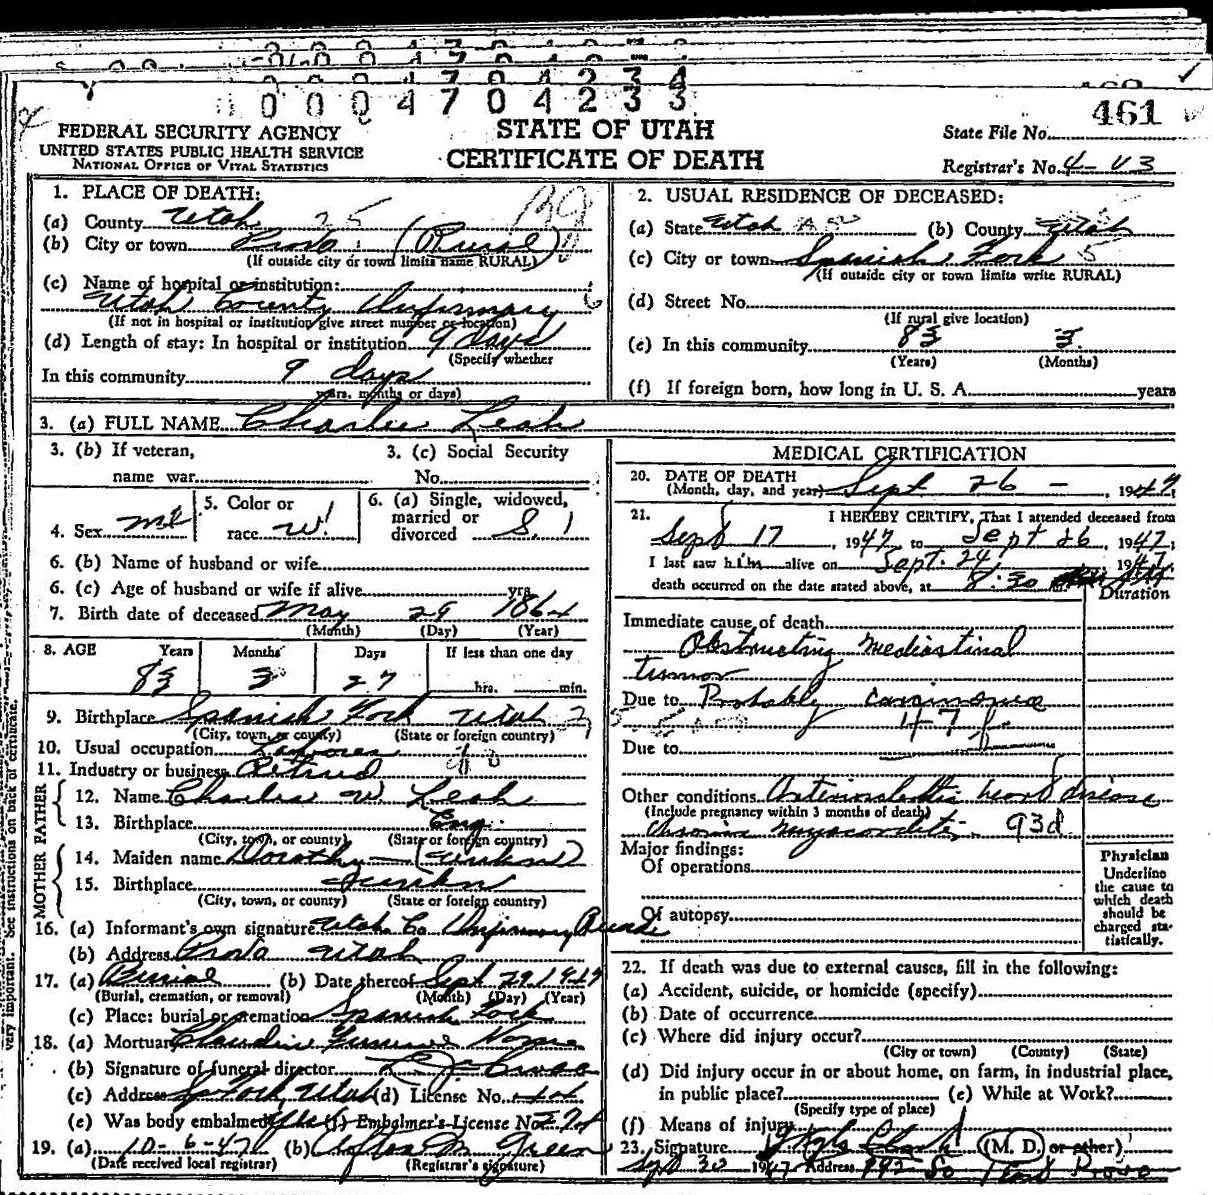 000470423
461
FEDERAL SECURITY AGENCY
UNITED STATES PUBLIC HEALTH SERVICE
NATIONAL OFFICE OF VITAL STATISTICS
STATE OF UTAH
CERTIFICATE OF DEATH
State File No.
Registrar's No. 4-
1. PLACE OF DEATH:
(a) County Utah 25
(b) City or town Provo (Rural)
(If outside city or town limits name RURAL)
(c) Name of hospital or institution:
Utah County Infirmary 6
(If not in hospital or institution give street number or location)
(d) Length of stay: In hospital or institution 9 days
(Specify whether
In this community 9 days
years, months or days)
2. USUAL RESIDENCE OF DECEASED:
(a) State Utah (b) County Utah
(c) City or town Spanish Fork 5
(If outside city or town limits write RURAL)
(d) Street No.
(If rural give location)
(e) In this community 83 3
(Years) (Months)
(f) If foreign born, how long in U. S. A. years
3. (a) FULL NAME Charlie Leah
3. (b) If veteran, 3. (c) Social Security
name war No.
4. Sex 5. Color or race W. 6. (a) Single, widowed, married or divorced S. 1
6. (b) Name of husband or wife
6. (c) Age of husband or wife if alive yrs.
7. Birth date of deceased May 29 1864
(Month) (Day) (Year)
8. AGE Years Months Days If less than one day
83 3 27 hrs. min.
9. Birthplace Spanish Fork Utah
(City, town, or county) (State or foreign country)
10. Usual occupation Laborer
11. Industry or business Retired
FATHER
12. Name Charles W. Leah
13. Birthplace Eng.
(City, town, or county) (State or foreign country)
MOTHER
14. Maiden name Dorothy
15. Birthplace
(City, town, or county) (State or foreign country)
16. (a) Informant's own signature Utah Co. Infirmary Records
(b) Address Provo Utah
17. (a) Burial (b) Date thereof Sept 29, 1947
(Burial, cremation, or removal) (Month) (Day) (Year)
(c) Place: burial or cremation Spanish Fork
18. (a) Mortuary Claudin Funeral Home
(b) Signature of funeral director
(c) Address Sp Fork, Utah (d) License No.
(e) Was body embalmed (f) Embalmer's License No.
19. (a) 10-6-47 (b) Clifton M. Green
(Date received local registrar) (Registrar's signature)
MEDICAL CERTIFICATION
20. DATE OF DEATH
(Month, day, and year) Sept 26 - , 1947
21. I HEREBY CERTIFY, That I attended deceased from
Sept 17 , 1947 to Sept 26 , 1947;
I last saw him alive on Sept. 24 1947
death occurred on the date stated above, at 8:30 m.
Duration
Immediate cause of death
Obstructing mediastinal
tumor
Due to Probably carcinoma
47f
Due to
Other conditions Arteriosclerotic heart disease
(Include pregnancy within 3 months of death)
chronic myocarditis 93d
Major findings:
Of operations
Of autopsy
Physician
Underline
the cause to
which death
should be
charged sta-
tistically.
22. If death was due to external causes, fill in the following:
(a) Accident, suicide, or homicide (specify)
(b) Date of occurrence
(c) Where did injury occur?
(City or town) (County) (State)
(d) Did injury occur in or about home, on farm, in industrial place,
in public place? (e) While at Work?
(Specify type of place)
(f) Means of injury
23. Signature Clark (M. D. or other)
1947 Address Provo
very important. See instructions on back of certificate.